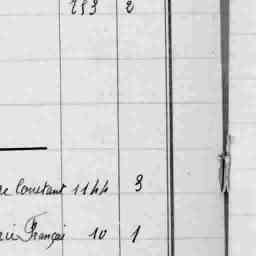 253 2
Constant 1144 3
François 10 1